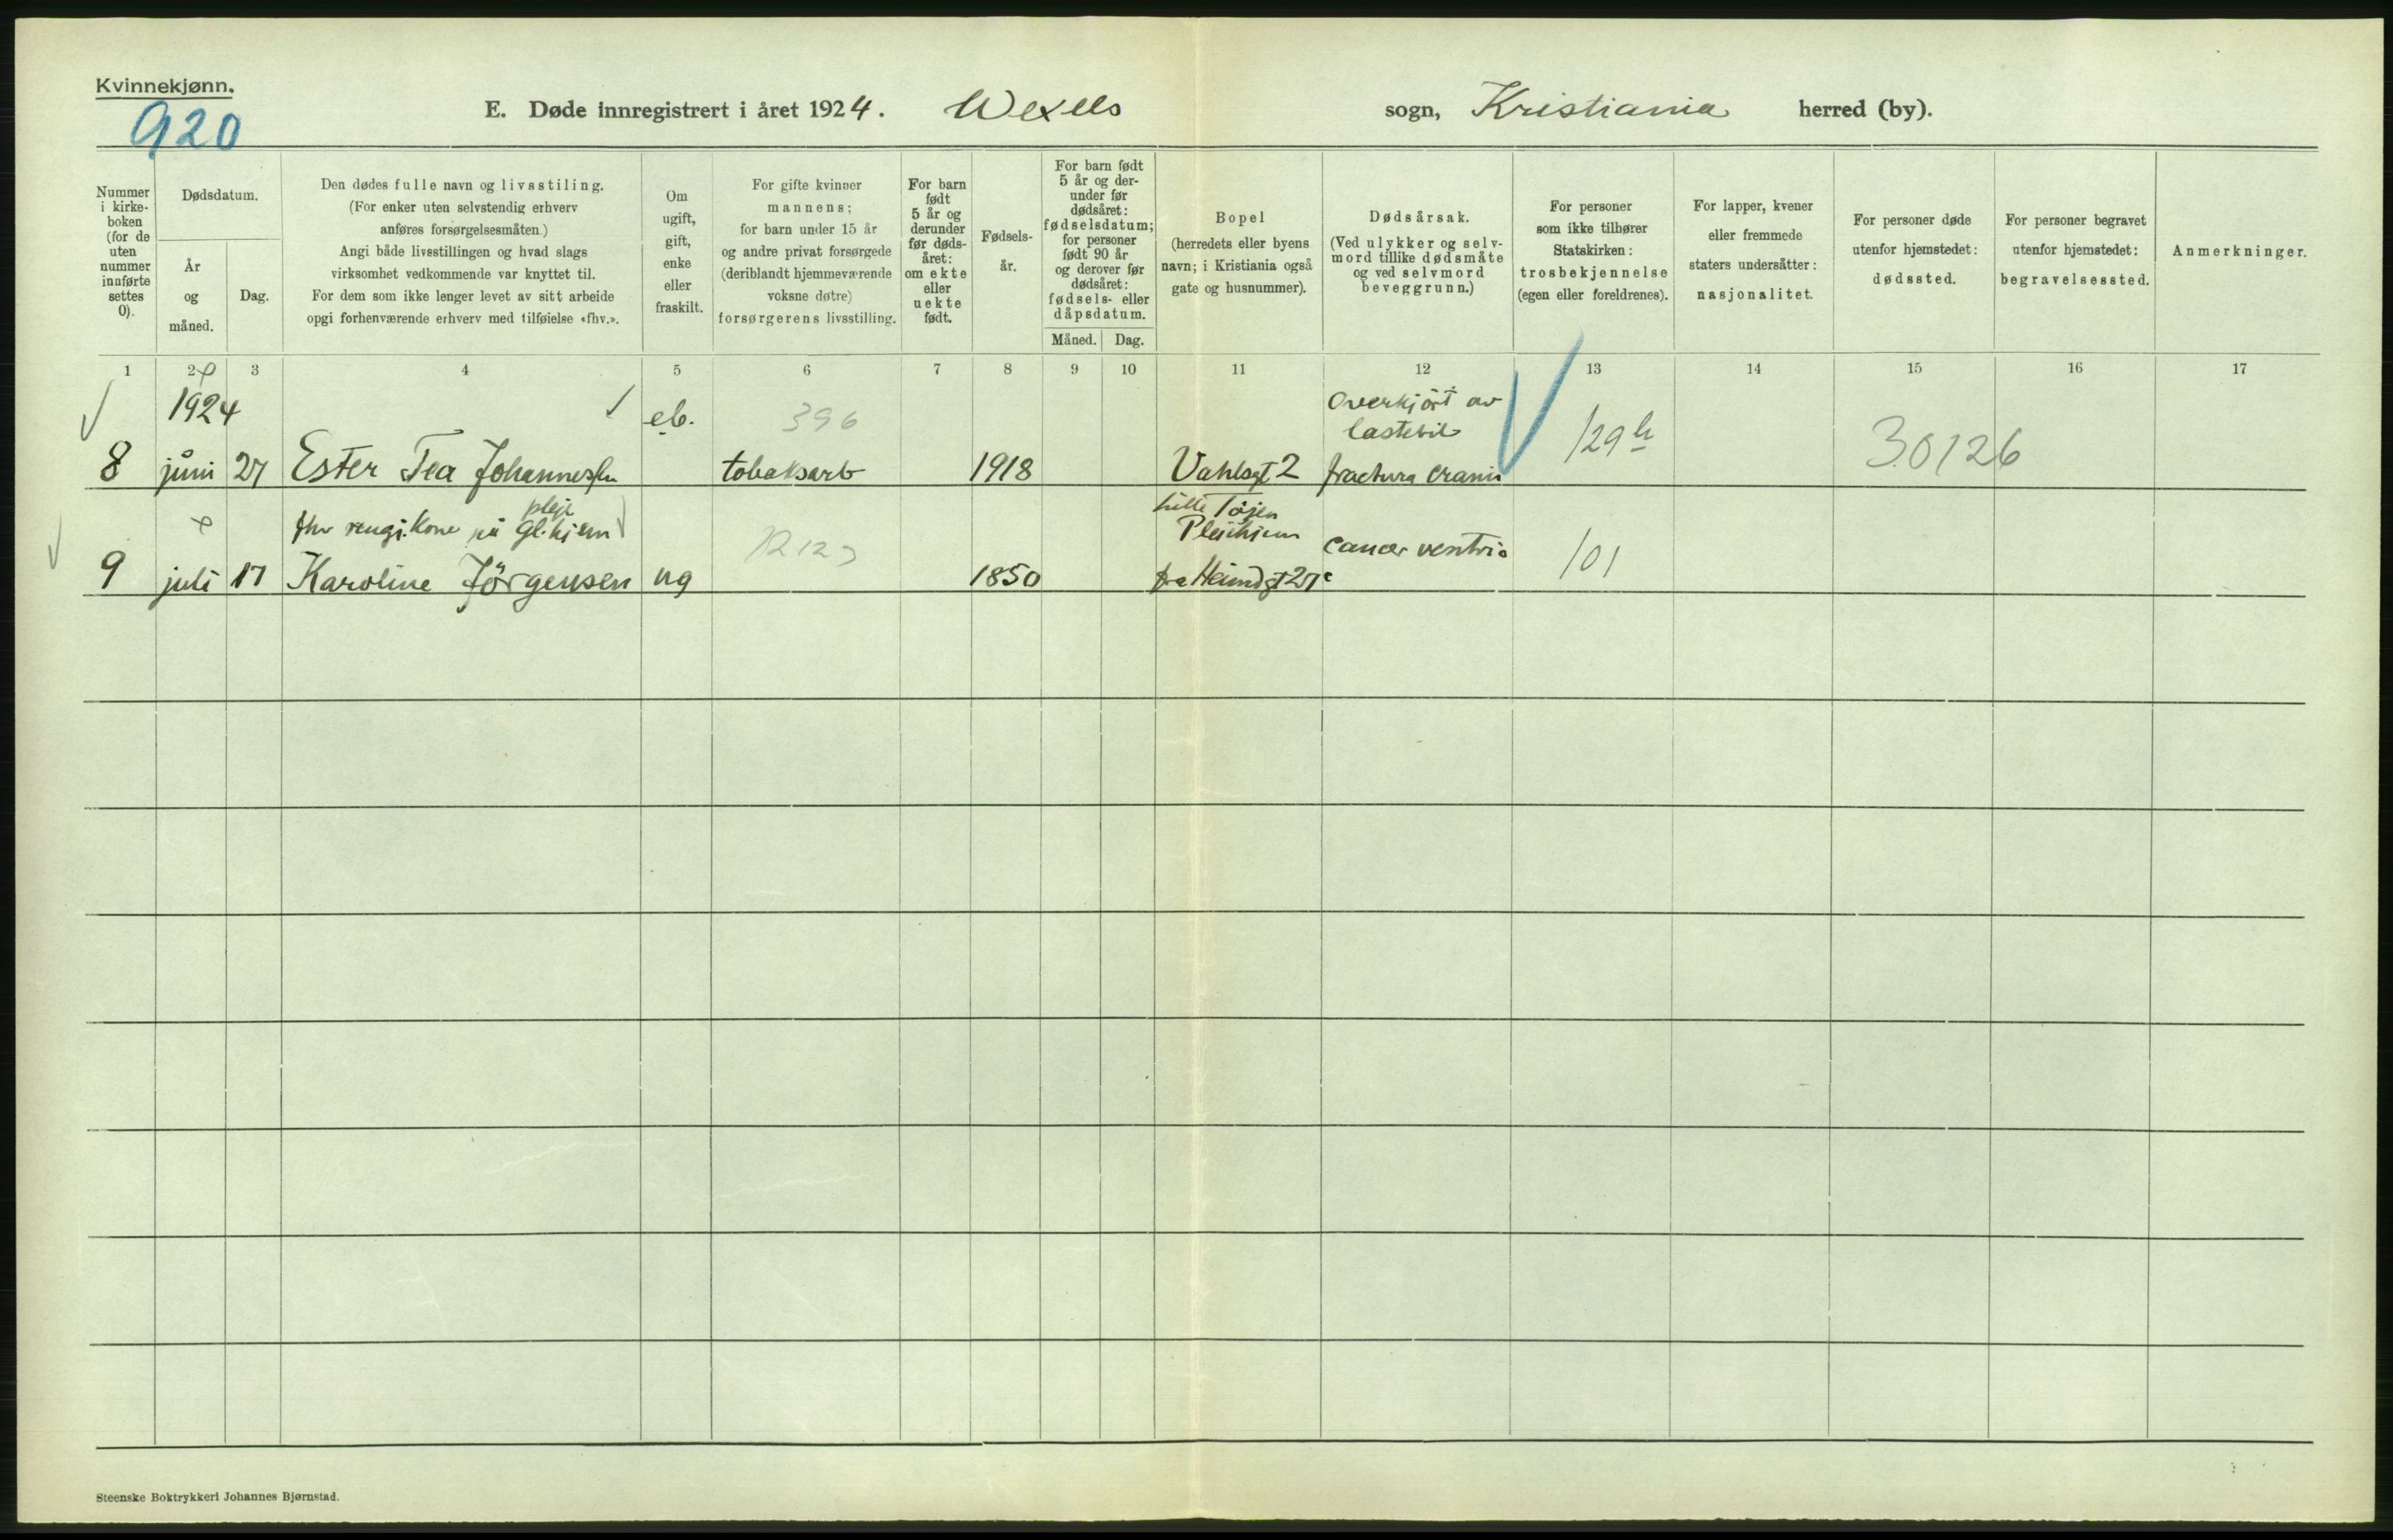 Kvinnekjønn.
920
E. Døde innregistrert i året 1924. Wexels sogn, Kristiania herred (by).
Nummer i kirke-boken (for de uten nummer innførte settes 0).
Dødsdatum.
År og måned.
Dag.
Den dødes fulle navn og livsstiling.
(For enker uten selvstendig erhverv
anføres forsørgelsesmåten.)
Angi både livsstillingen og hvad slags
virksomhet vedkommende var knyttet til.
For dem som ikke lenger levet av sitt arbeide
opgi forhenværende erhverv med tilføielse «fhv.».
Om
ugift,
gift,
enke
eller
fraskilt.
For gifte kvinner
mannens;
for barn under 15 år
og andre privat forsørgede
(deriblandt hjemmeværende
voksne døtre)
forsørgerens livsstilling.
For barn
født
5 år og
derunder
før døds-
året:
om ekte
eller
uekte
født.
Fødsels-
år.
For barn født
5 år og der-
under før
dødsåret:
fødselsdatum;
for personer
født 90 år
og derover før
dødsåret:
fødsels- eller
dåpsdatum.
Måned. Dag.
Bopel
(herredets eller byens
navn; i Kristiania også
gate og husnummer).
Dødsårsak.
(Ved ulykker og selv-
mord tillike dødsmåte
og ved selvmord
beveggrunn.)
For personer
som ikke tilhører
Statskirken:
trosbekjennelse
(egen eller foreldrenes).
For lapper, kvener
eller fremmede
staters undersåtter:
nasjonalitet.
For personer døde
utenfor hjemstedet:
dødssted.
For personer begravet
utenfor hjemstedet:
begravelsessted.
Anmerkninger.
1 2 3 4 5 6 7 8 9 10 11 12 13 14 15 16 17
1924 396 Overkjört av
eb. lastebil 129 30126
8 juni 27 Ester Tea Johannessen tobaksarb 1918 Vahlsgt 2 fractura cranii
pleje lille Töjen
fhv rengj.kone på Gl.hjem Pleiehjem cancer ventric 101
9 juli 17 Karoline Jörgensen ug 1850 fra Heimdgt 27
Steenske Boktrykkeri Johannes Bjørnstad.